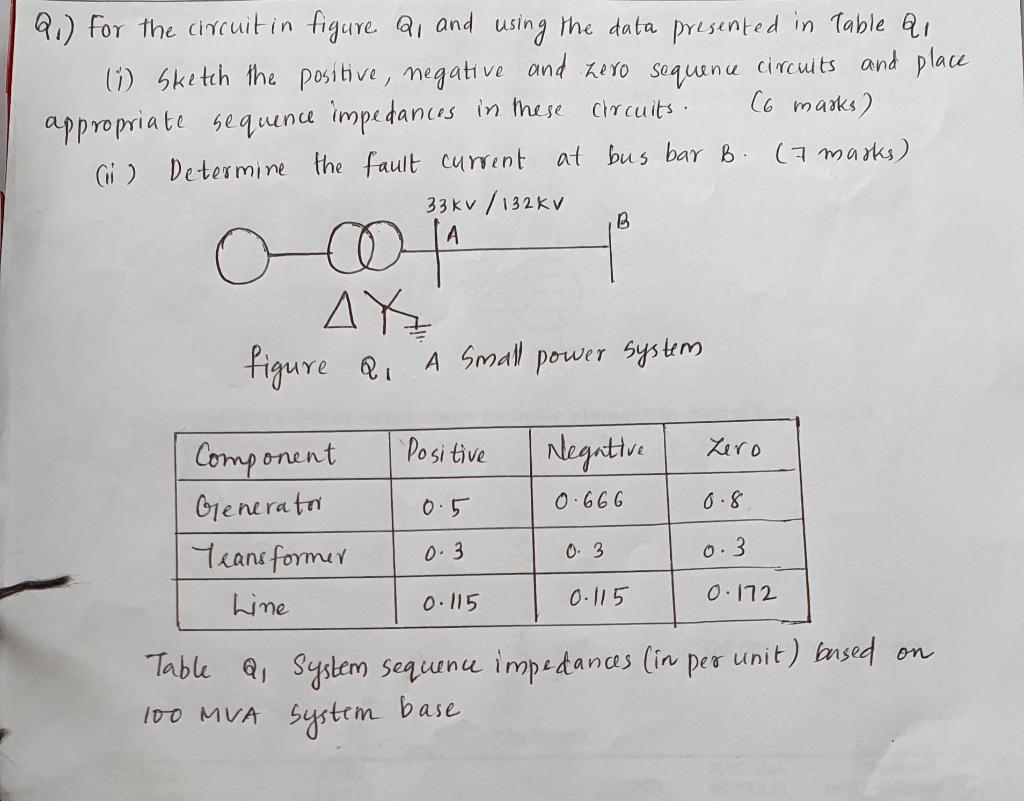 Q1) For the circuit in figure Q1 and using the data presented in Table Q1
(i) Sketch the positive, negative and zero sequence circuits and place
appropriate sequence impedances in these circuits. (6 marks)
(ii) Determine the fault current at bus bar B. (7 marks)
33KV / 132KV
A
B
Δ Y
figure Q1 A Small power system
Component Positive Negative Zero
Generator 0.5 0.666 0.8
Transformer 0.3 0.3 0.3
Line 0.115 0.115 0.172
Table Q1 System sequence impedances (in per unit) based on
100 MVA system base